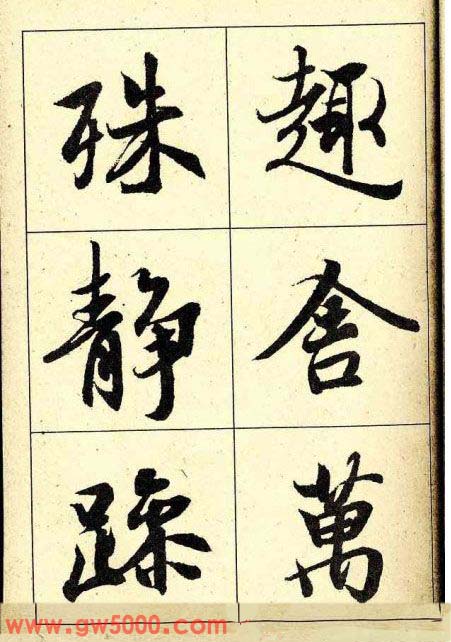 趣舍萬
殊静躁
www.gw5000.com